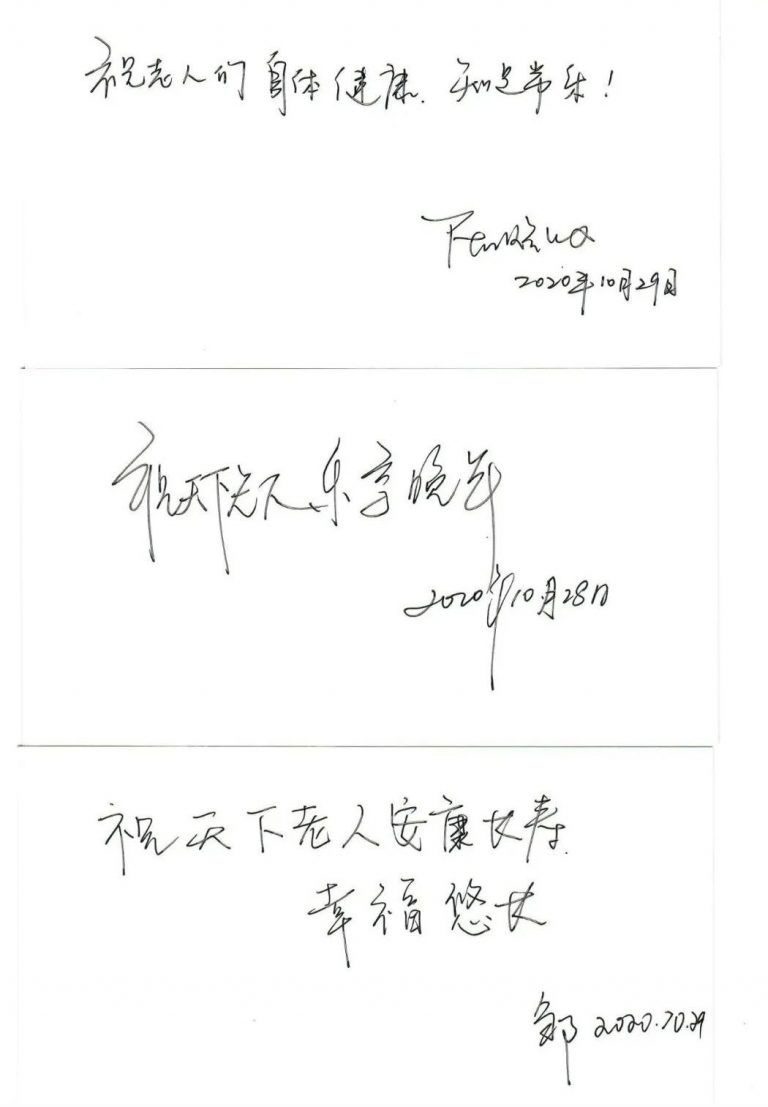 祝老人们身体健康、知足常乐!
2020年10月29日
祝天下老人乐享晚年
2020年10月28日
祝天下老人安康长寿.
幸福悠长
邹 2020.10.29